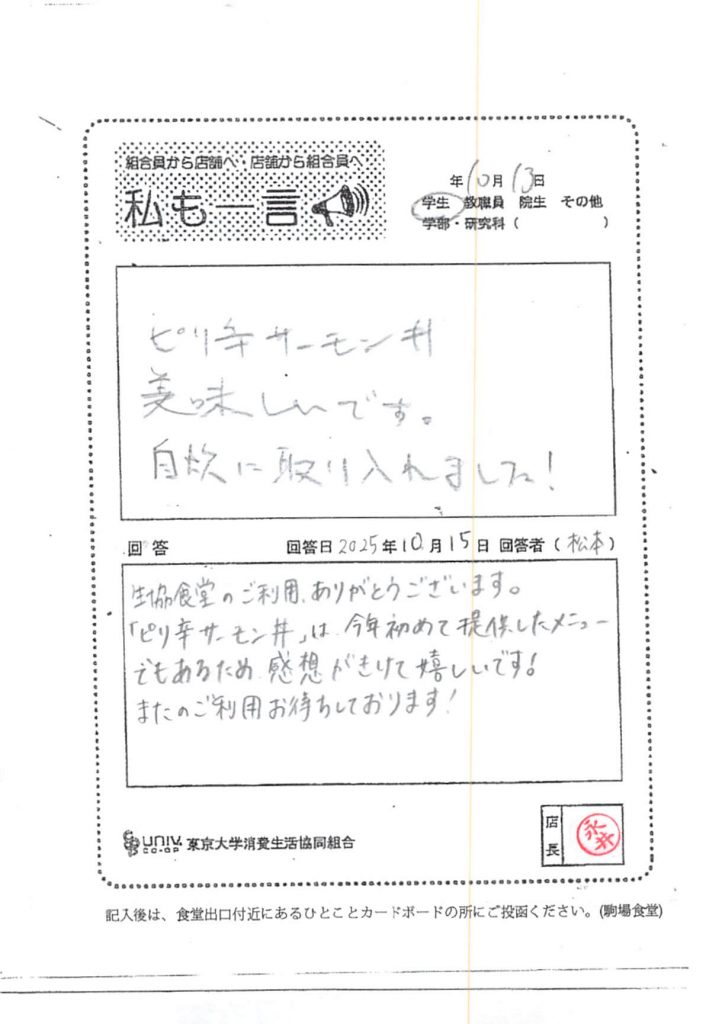 組合員から店舗へ・店舗から組合員へ
私も一言
年10月13日
学生 教職員 院生 その他
学部・研究科( )
ピリ辛サーモン丼
美味しいです。
自炊に取り入れました!
回答 回答日2025年10月15日 回答者(松本)
生協食堂のご利用、ありがとうございます。
「ピリ辛サーモン丼」は、今年初めて提供したメニュー
でもあるため、感想がきけて嬉しいです!
またのご利用お待ちしております!
UNIV. CO-OP 東京大学消費生活協同組合
店長 永井
記入後は、食堂出口付近にあるひとことカードボードの所にご投函ください。(駒場食堂)